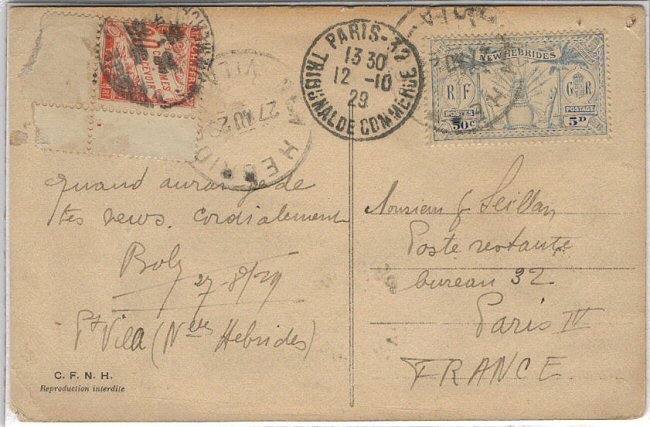 A PERCEVOIR
PARIS-32
13 30
12 -10
29
TRIBUNAL DE COMMERCE
VILA
27 AU 29
HEBRID
NEW HEBRIDES
RF
GR
POSTES
POSTAGE
50c
5D
quand aurai-je de
tes news. Cordialement
Boby
27-8/29
Pt Vila (Nles Hebrides)
C. F. N. H.
Reproduction interdite
Monsieur J Seillan
Poste restante
bureau 32
Paris IV
FRANCE